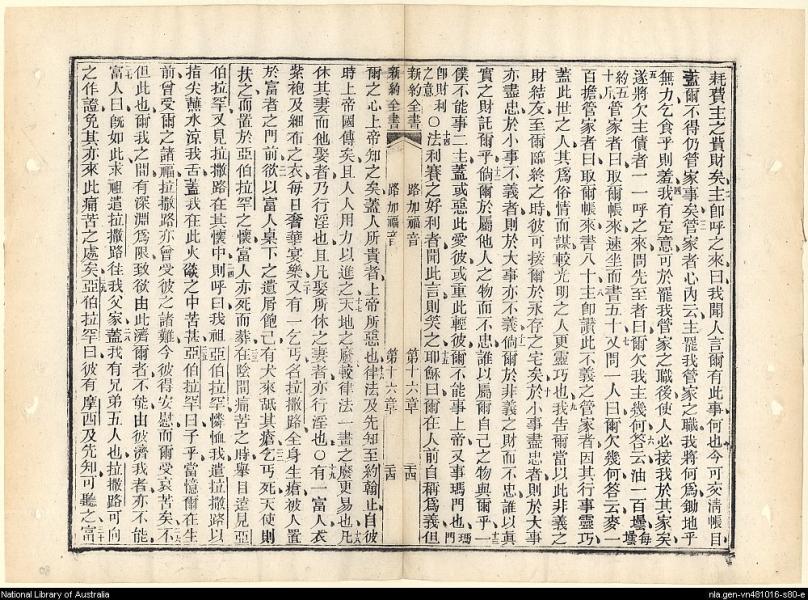 耗費主之貲財矣主卽呼之來曰我聞人言爾有此事何也今可交清帳目
蓋爾不得仍管家事矣管家者心內云主罷我管家之職我將何爲鋤地乎
無力乞食乎則羞我有定意可於罷我管家之職後使人必接我於其家矣
遂將欠主債者一一呼之來問先至者曰爾欠我主幾何答云油一百罎每罎
約五十斤管家者曰取爾帳來速坐而書五十又問一人曰爾欠幾何答云麥一
百擔管家者曰取爾帳來書八十主卽讚此不義之管家者因其行事靈巧
蓋此世之人其爲俗情而謀較光明之人更靈巧也我告爾當以此非義之
財結友至爾臨終之時彼可接爾於永存之宅矣於小事盡忠者則於大事
亦盡忠於小事不義者則於大事亦不義倘爾於非義之財而不忠誰以眞
實之財託爾乎倘爾於屬他人之物而不忠誰以屬爾自己之物與爾乎一
僕不能事二主蓋或惡此愛彼或重此輕彼爾不能事上帝又事瑪門也瑪門
卽財利之意〇法利賽之好利者聞此言則笑之耶穌曰爾在人前自稱爲義但
新約全書 路加福音 第十六章 三十四
新約全書 路加福音 第十六章 三十四
爾之心上帝知之矣蓋人所貴者上帝所惡也律法及先知至約翰止自彼
時上帝國傳矣且人人用力以進之天地之廢較律法一畫之廢更易也凡
休其妻而他娶者乃行淫也且凡娶所休之妻者亦行淫也〇有一富人衣
紫袍及細布之衣每日奢華宴樂又有一乞丐名拉撒路全身生瘡被人置
於富者之門前欲以富人桌下之遺屑飽己有犬來舐其瘡乞丐死天使則
扶之而置於亞伯拉罕之懷富人亦死而葬在陰間痛苦之時舉目遠見亞
伯拉罕又見拉撒路在其懷中則呼曰我祖亞伯拉罕憐恤我遣拉撒路以
指尖蘸水涼我舌蓋我在此火燄之中苦甚亞伯拉罕曰子乎當憶爾在生
前曾受爾之諸福拉撒路亦曾受彼之諸難今彼得安慰而爾受哀苦矣不
但此也爾我之間有深淵爲限致欲由此濟爾者不能由彼濟我者亦不能
富人曰旣如此求祖遣拉撒路往我父家蓋我有兄弟五人也拉撒路可向
之作證免其亦來此痛苦之處矣亞伯拉罕曰彼有摩西及先知可聽之富
National Library of Australia
nla.gen-vn481016-s80-e